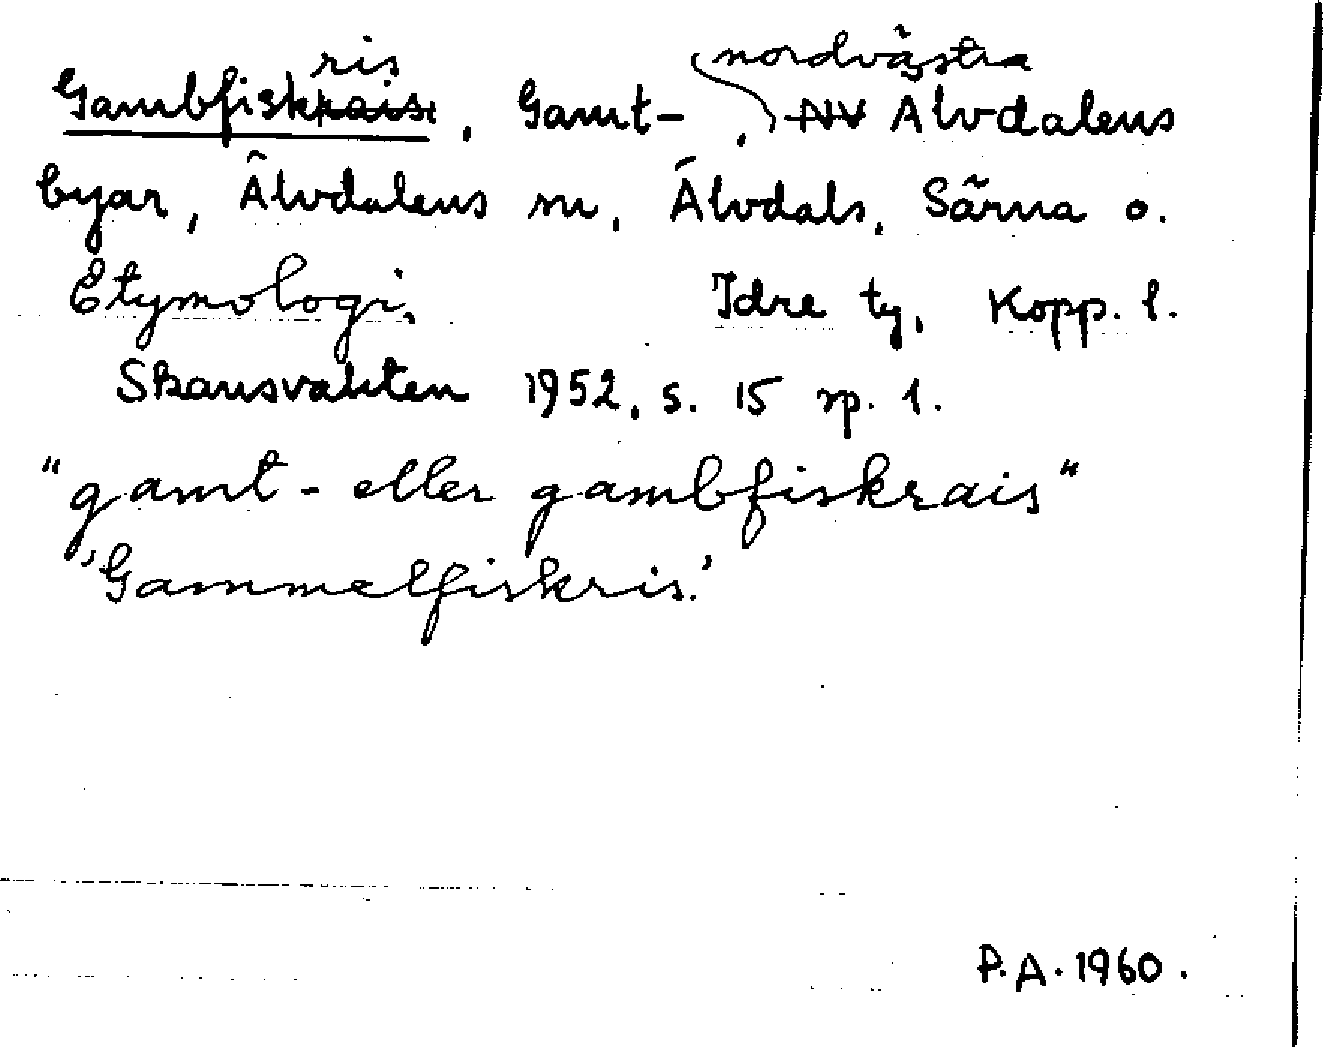 ris nordvästra
Gambfiskrais, Gamt-, NV Älvdalens
byar, Älvdalens sn, Älvdals, Särna o.
Etymologi. Idre tg, Kopp. l.
Skansvakten 1952, s. 15 sp. 1.
"gamt- eller gambfiskrais"
'Gammelfiskris.'
P.A. 1960.